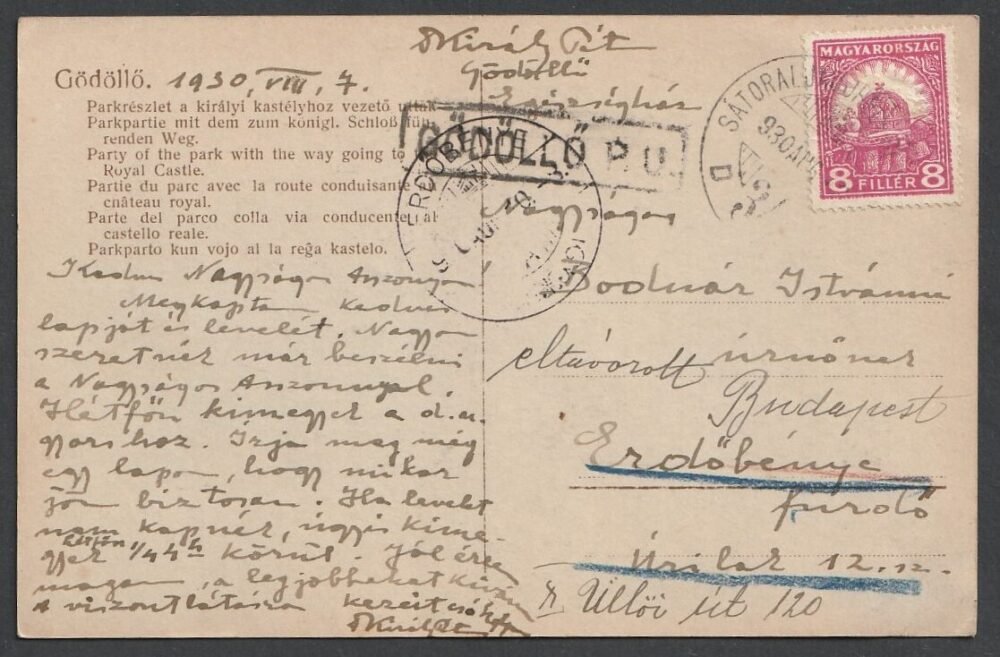 Király Pát
Gödöllő
Községház
Gödöllő. 1930, VIII, 7.
Parkrészlet a királyi kastélyhoz vezető úttal.
Parkpartie mit dem zum königl. Schloß füh-
renden Weg.
Party of the park with the way going to
Royal Castle.
Partie du parc avec la route conduisante
château royal.
Parte del parco colla via conducente al
castello reale.
Parkparto kun vojo al la reĝa kastelo.
GÖDÖLLŐ P. U.
ERDŐBÉNYE
SÁTORALJAÚJHELY
930 AUG
D
MAGYARORSZÁG
8 FILLÉR 8
Nagyságos
Bodnár Istvánné
úrnőnek
eltávozott
Budapest
Erdőbénye
fürdő
Úrilak 12. sz.
Üllői út 120
Kedves Nagyságos Asszonyom
Megkaptam kedves
lapját és levelét. Nagyon
szeretnék már beszélni
a Nagyságos Asszonnyal.
Hétfőn kimegyek a d. u.
gyorshoz. Írja meg még
egy lapon, hogy mikor
jön biztosan. Ha levelet
nem kapnék, úgyis kime-
gyek hétfőn 1/4 4 h körül. Jól érezze
magam, a legjobbakat kívánva
A viszontlátásra kezeit csókolja
Király Pát